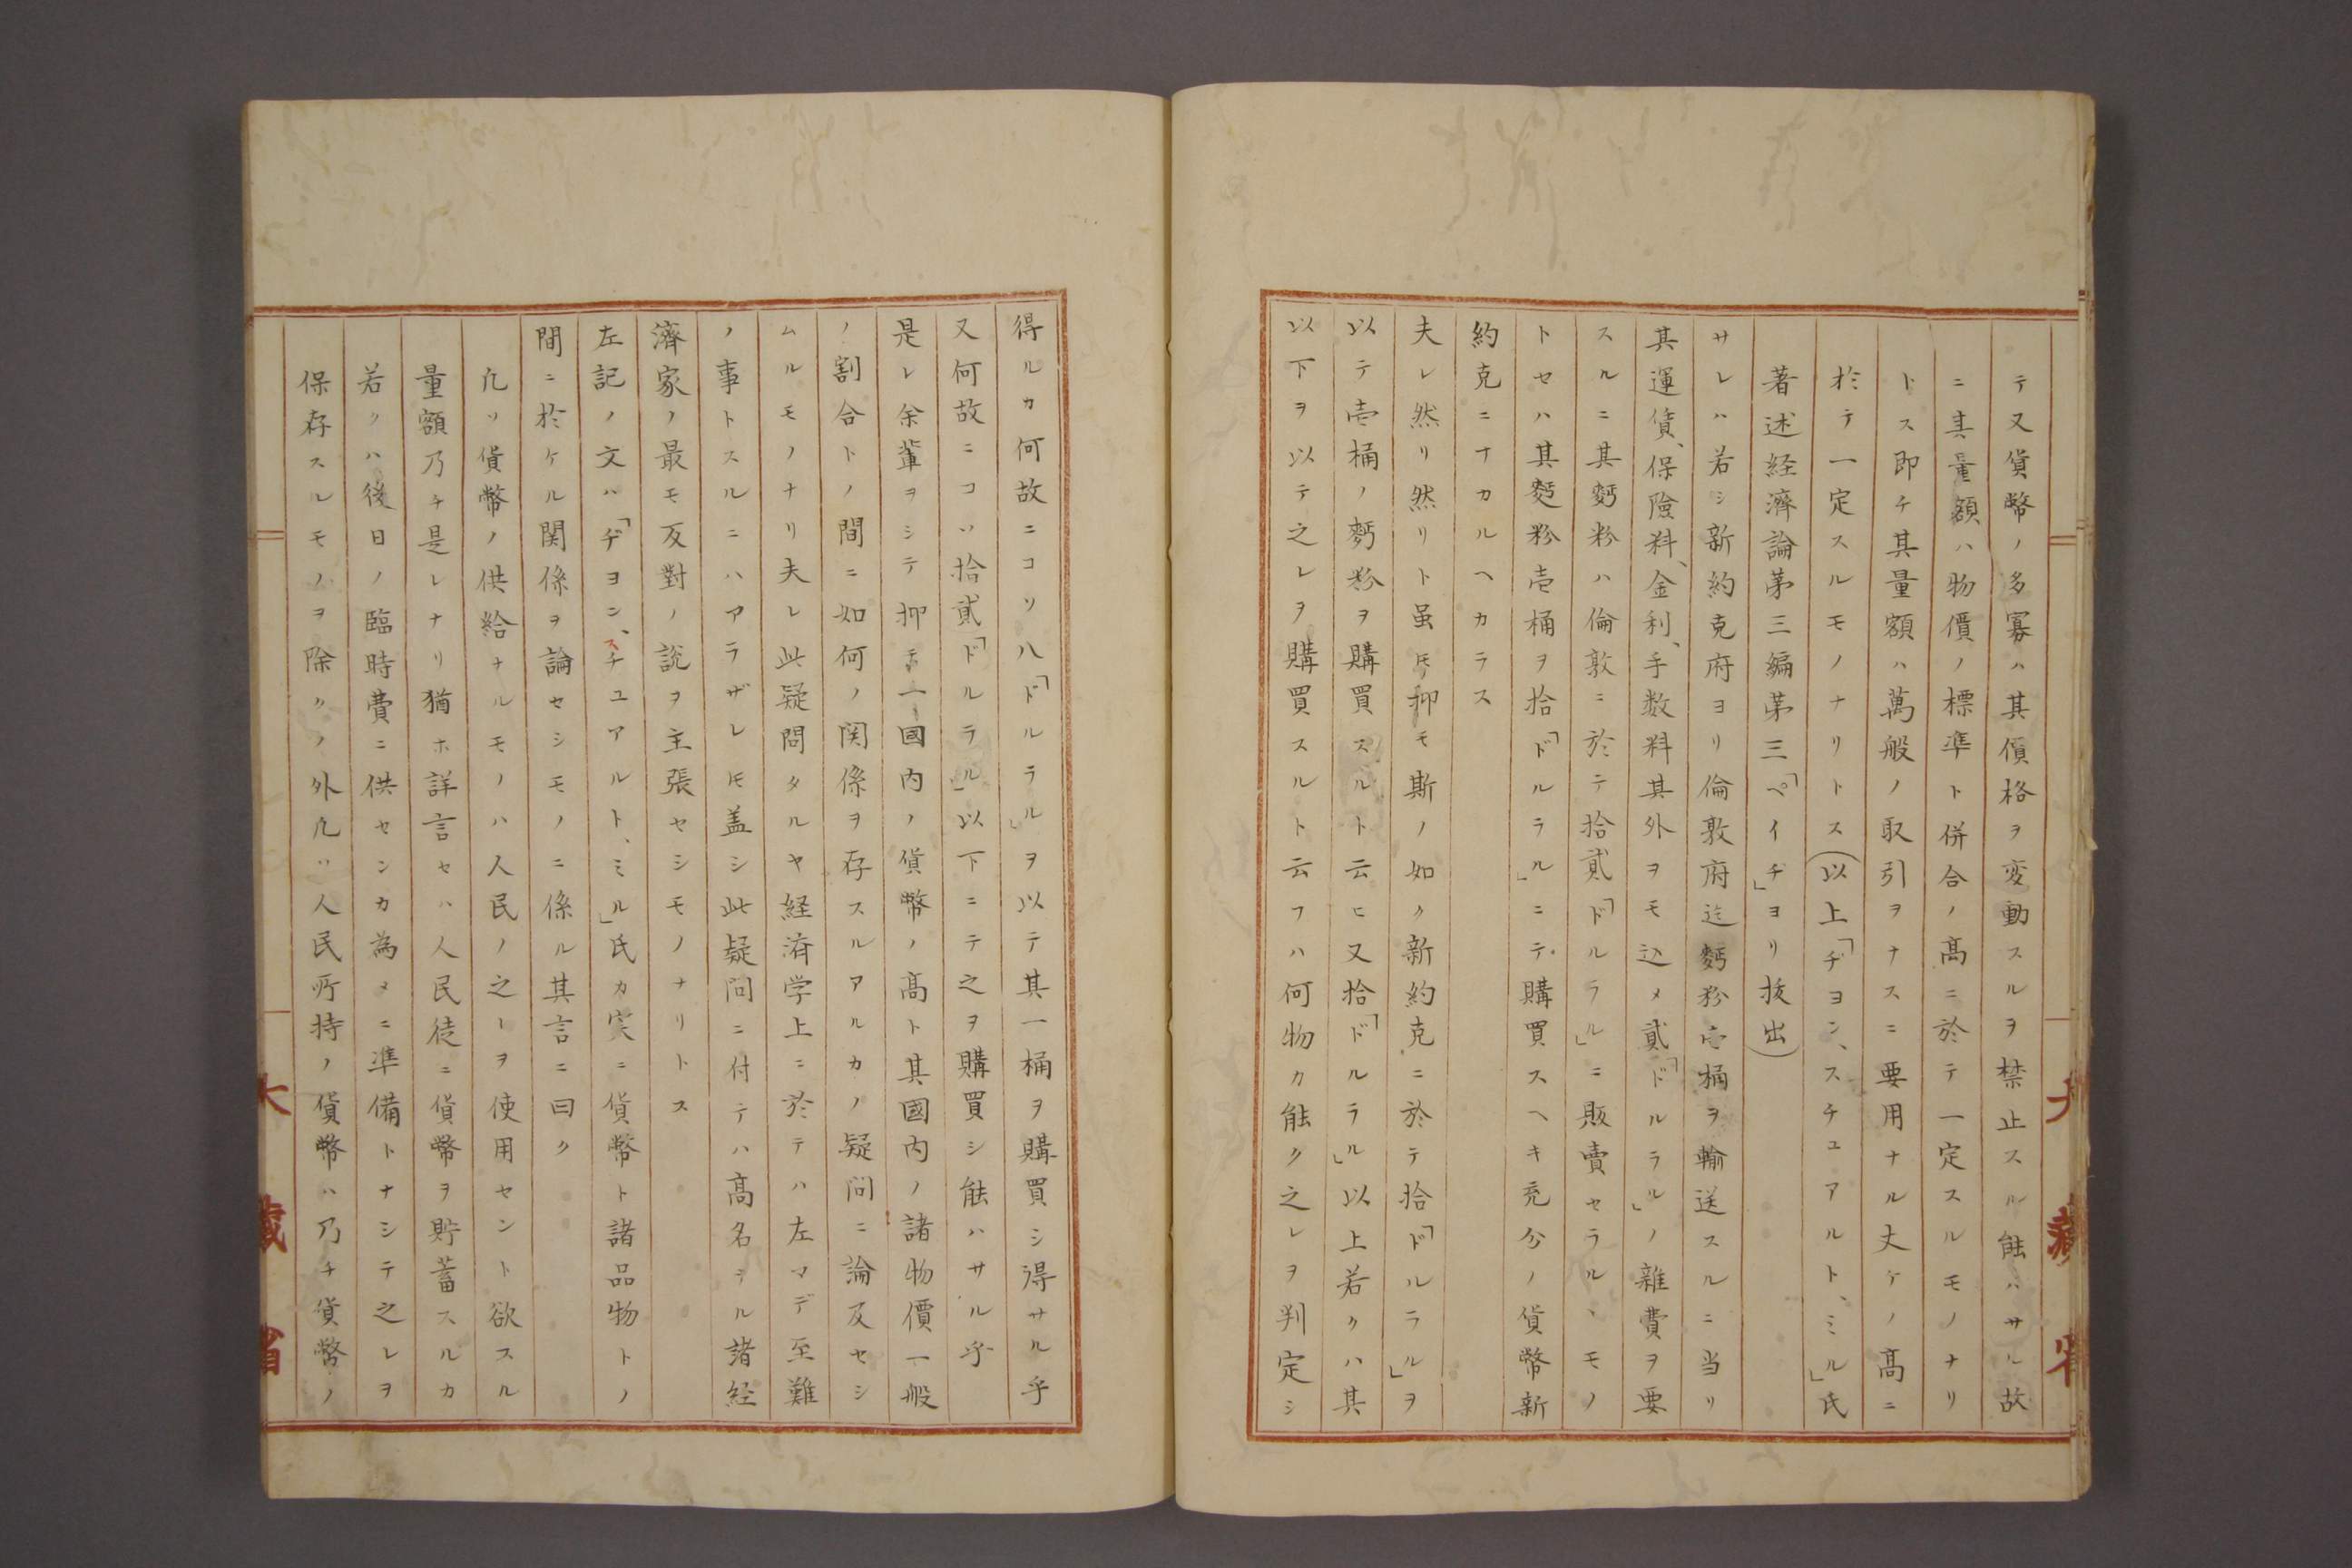 テ又貨幣ノ多寡ハ其價格ヲ変動スルヲ禁止スル能ハサル故
ニ其量額ハ物價ノ標準ト併合ノ髙ニ於テ一定スルモノナリ
トス即チ其量額ハ萬般ノ取引ヲナスニ要用ナル丈ケノ髙ニ
於テ一定スルモノナリトス(以上「ヂヨン、スチユアルト、ミル」氏
著述経濟論苐三編苐三「ペイヂ」ヨリ抜出)
サレハ若シ新約克府ヨリ倫敦府迄麪粉壱桶ヲ輸送スルニ当リ
其運賃、保險料、金利、手数料其外ヲモ込メ貳「ドルラル」ノ雑費ヲ要
スルニ其麪粉ハ倫敦ニ於テ拾貳「ドルラル」ニ販賣セラルヽモノ
トセハ其麪粉壱桶ヲ拾「ドルラル」ニテ購買スヘキ充分ノ貨幣新
約克ニナカルヘカラス
夫レ然リ然リト虽𪜈抑モ斯ノ如ク新約克ニ於テ拾「ドルラル」ヲ
以テ壱桶ノ麪粉ヲ購買スルト云ヒ又拾「ドルラル」以上若クハ其
以下ヲ以テ之レヲ購買スルト云フハ何物カ能ク之レヲ判定シ
大藏省
得ルカ何故ニコソ八「ドルラル」ヲ以テ其一桶ヲ購買シ得サル乎
又何故ニコソ拾貳「ドルラル」以下ニテ之ヲ購買シ能ハサル乎
是レ余輩ヲシテ抑モ一國内ノ貨幣ノ髙ト其國内ノ諸物價一般
ノ割合トノ間ニ如何ノ関係ヲ存スルアルカノ疑问ニ論及セシ
ムルモノナリ夫レ此疑問タルヤ経済学上ニ於テハ左マデ至難
ノ事トスルニハアラザレ𪜈盖シ此疑问ニ付テハ髙名ナル諸経
濟家ノ最モ反對ノ説ヲ主張セシモノナリトス
左記ノ文ハ「ヂヨン、スチユアルト、ミル」氏カ実ニ貨幣ト諸品物トノ
間ニ於ケル関係ヲ論セシモノニ係ル其言ニ曰ク
凢ソ貨幣ノ供給ナルモノハ人民ノ之レヲ使用セント欲スル
量額乃チ是レナリ猶ホ詳言セハ人民徒ニ貨幣ヲ貯蓄スルカ
若クハ後日ノ臨時費ニ供センカ為メニ準備トナシテ之レヲ
保存スルモノヲ除クノ外凢ソ人民所持ノ貨幣ハ乃チ貨幣ノ
大藏省